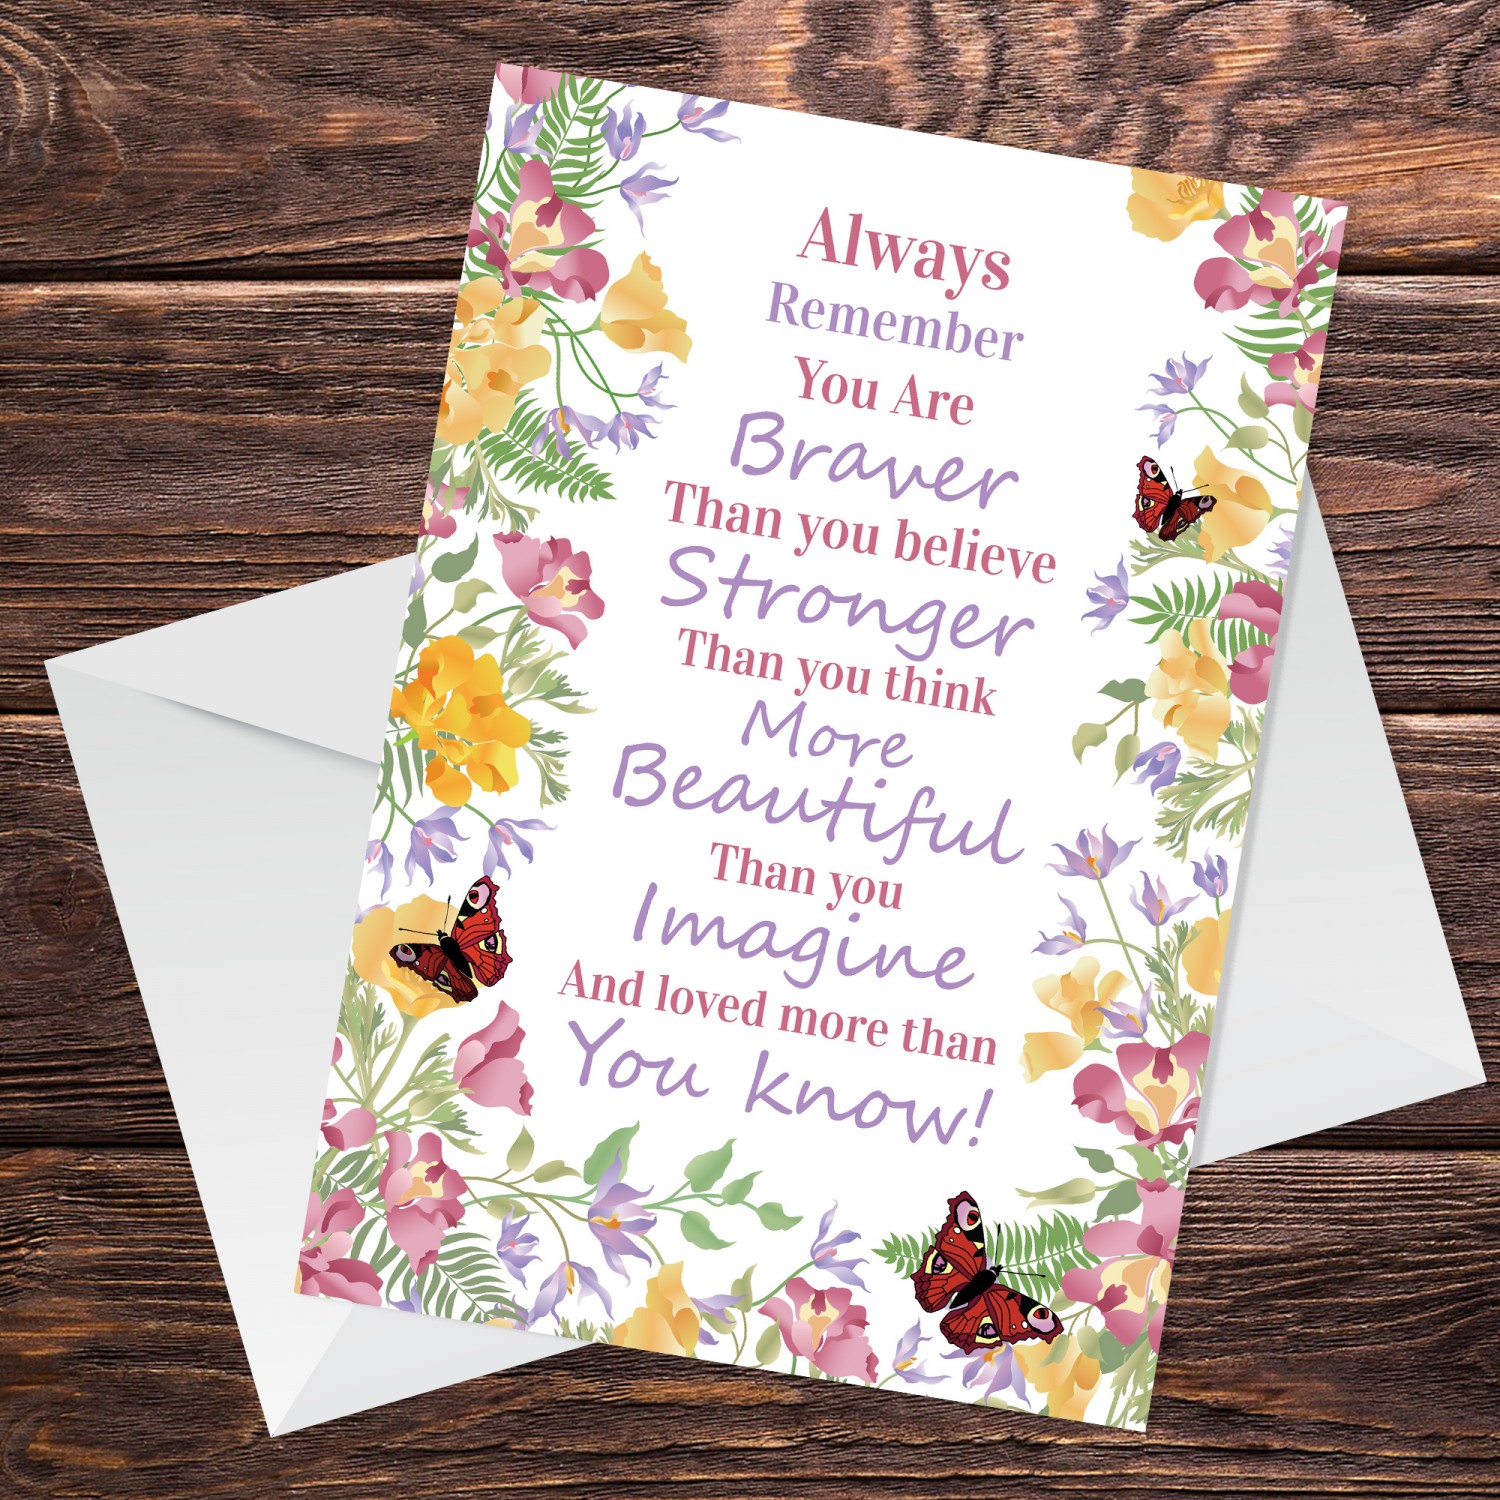 Always
Remember
You Are
Braver
Than you believe
Stronger
Than you think
More
Beautiful
Than you
Imagine
And loved more than
You know!